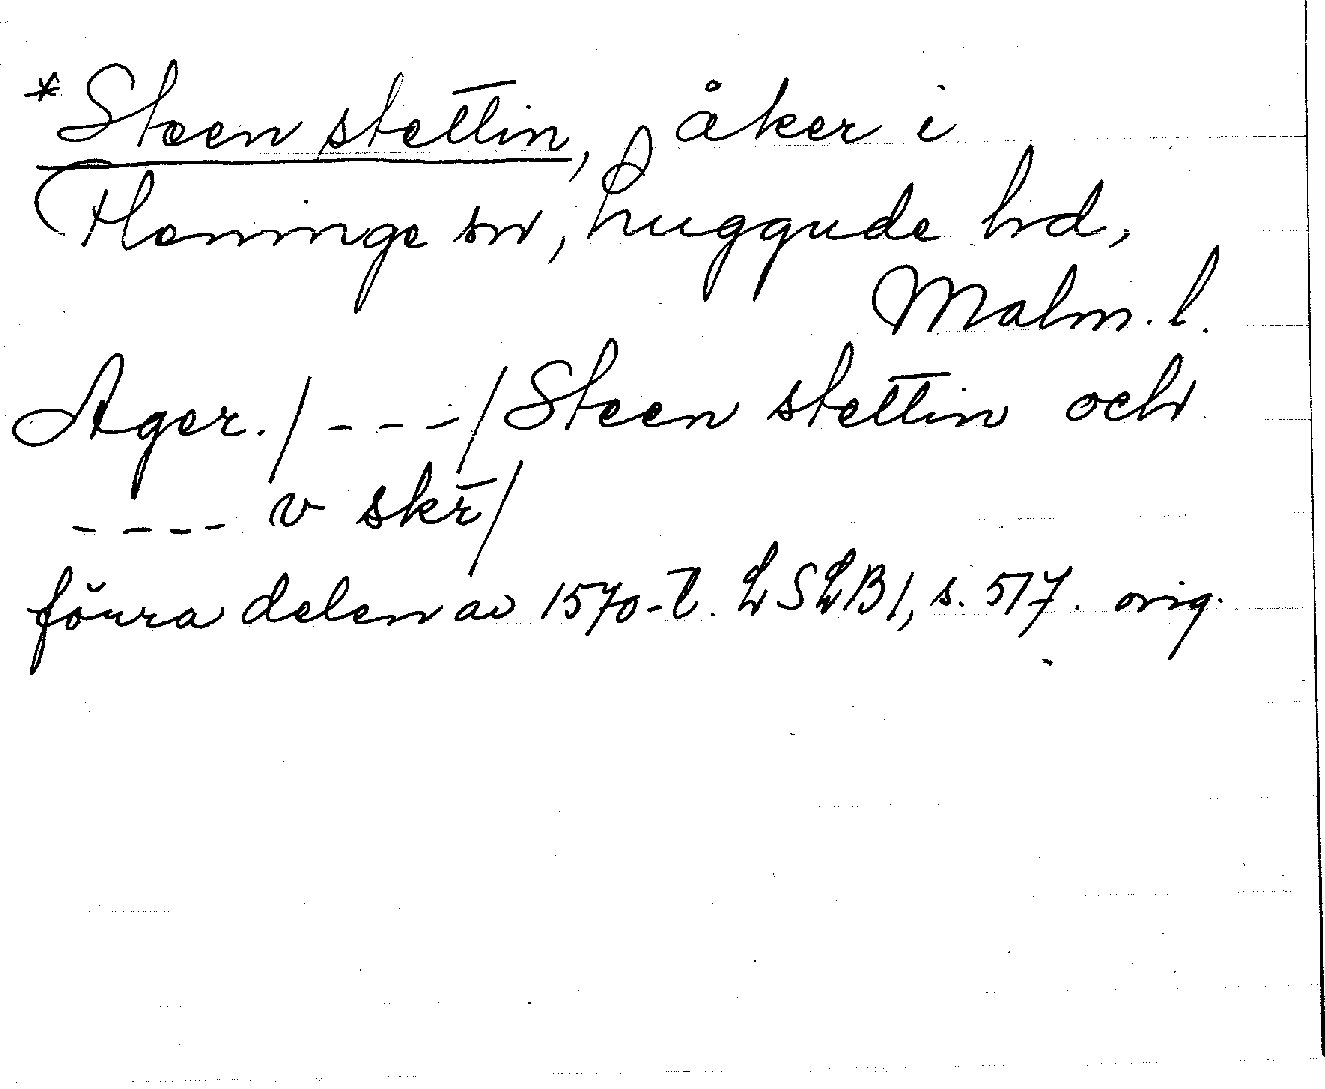 *Steen stettin, åker i
Fleninge sn, Luggude hd,
Malm. l.
Ager. / - - - / Steen stettin och
- - - - v skr̄ /
förra delen av 1570-t. LSLB 1, s. 517. orig.